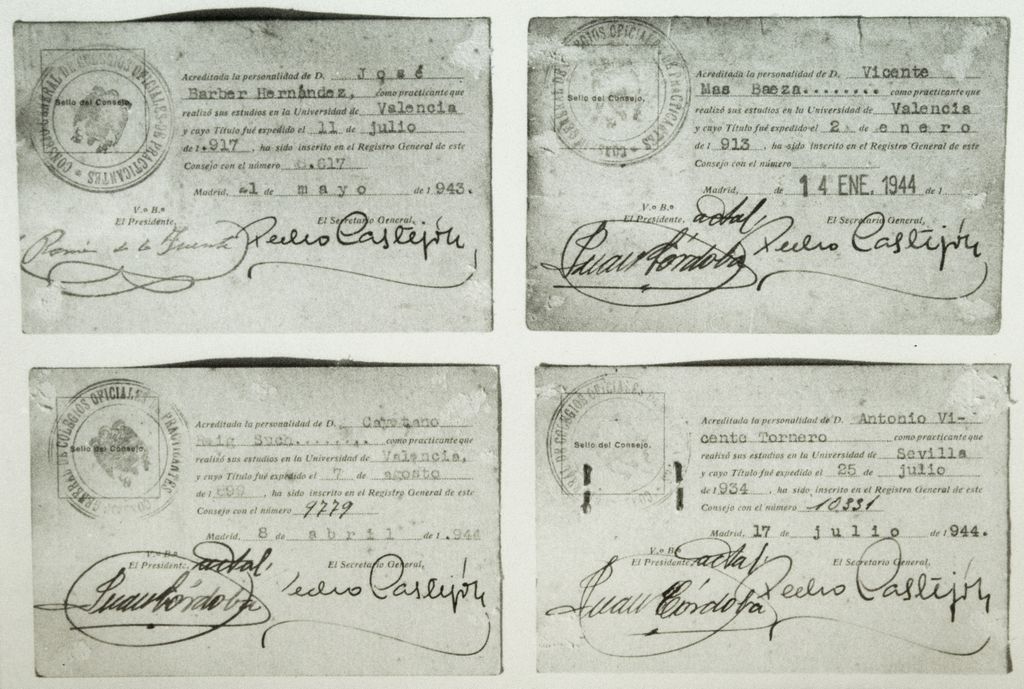 CONSEJO GENERAL DE COLEGIOS OFICIALES DE PRACTICANTES
Sello del Consejo.
Acreditada la personalidad de D. José
Barber Hernández, como practicante que
realizó sus estudios en la Universidad de Valencia
y cuyo Título fué expedido el 11 de julio
de 1.917, ha sido inscrito en el Registro General de este
Consejo con el número 8.617
Madrid, 1 de mayo de 1943.
V.º B.º
El Presidente, El Secretario General,
Román de la Fuente Pedro Castejón
COLEGIOS OFICIALES DE PRACTICANTES
Sello del Consejo.
Acreditada la personalidad de D. Vicente
Mas Baeza......... como practicante que
realizó sus estudios en la Universidad de Valencia
y cuyo Título fué expedido el 2 de enero
de 1 913, ha sido inscrito en el Registro General de este
Consejo con el número
Madrid, de 14 ENE. 1944 de 1
V.º B.º
El Presidente, actal, El Secretario General,
Juan Córdoba Pedro Castejón
GENERAL DE COLEGIOS OFICIALES PRACTICANTES
Sello del Consejo.
Acreditada la personalidad de D. Cayetano
Such........, como practicante que
realizó sus estudios en la Universidad de Valencia,
y cuyo Título fué expedido el 7 de agosto
de 1 899, ha sido inscrito en el Registro General de este
Consejo con el número 9779
Madrid, 8 de abril de 1.944
V.º B.º
El Presidente, actal, El Secretario General,
Juan Córdoba Pedro Castejón
DE COLEGIOS OFICIALES
Sello del Consejo.
Acreditada la personalidad de D. Antonio Vi-
cente Tornero como practicante que
realizó sus estudios en la Universidad de Sevilla
y cuyo Título fué expedido el 25 de julio
de 1934, ha sido inscrito en el Registro General de este
Consejo con el número 10.331
Madrid, 17 de julio de 1944.
V.º B.º
El Presidente, actal, El Secretario General,
Juan Córdoba Pedro Castejón